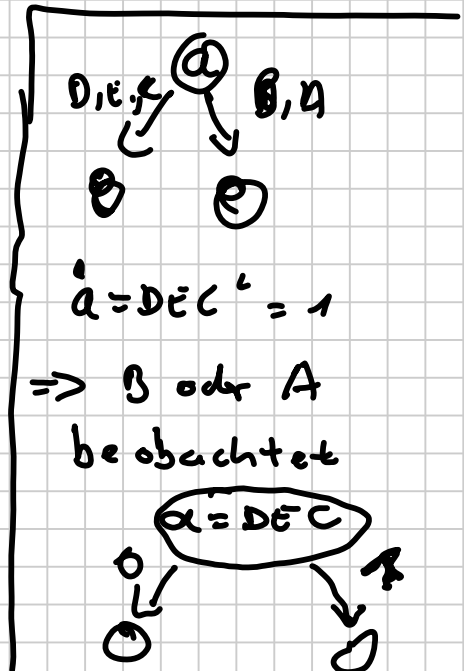 a
D,E,C B,A
e
a = DEC = 1
=> B oder A
beobachtet
a = DEC
0